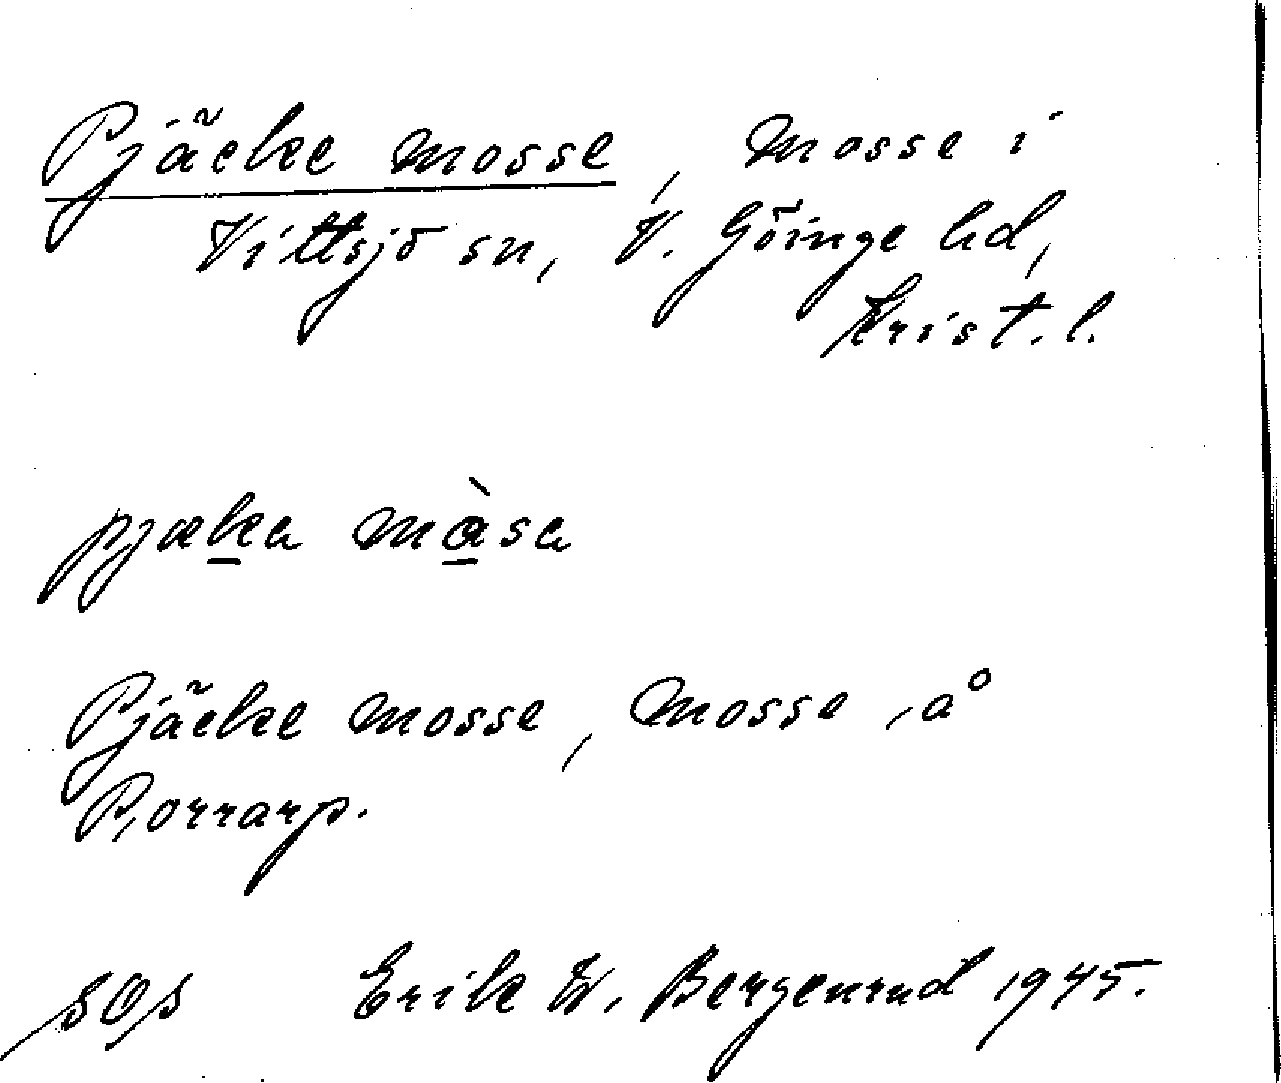 Pjäcke mosse, mosse i
Vittsjö sn, V. Göinge hd,
Krist. l.
pjæka màsa
Pjäcke mosse, mosse, å
Porrarp.
SOS Erik W. Bergenrud 1945.